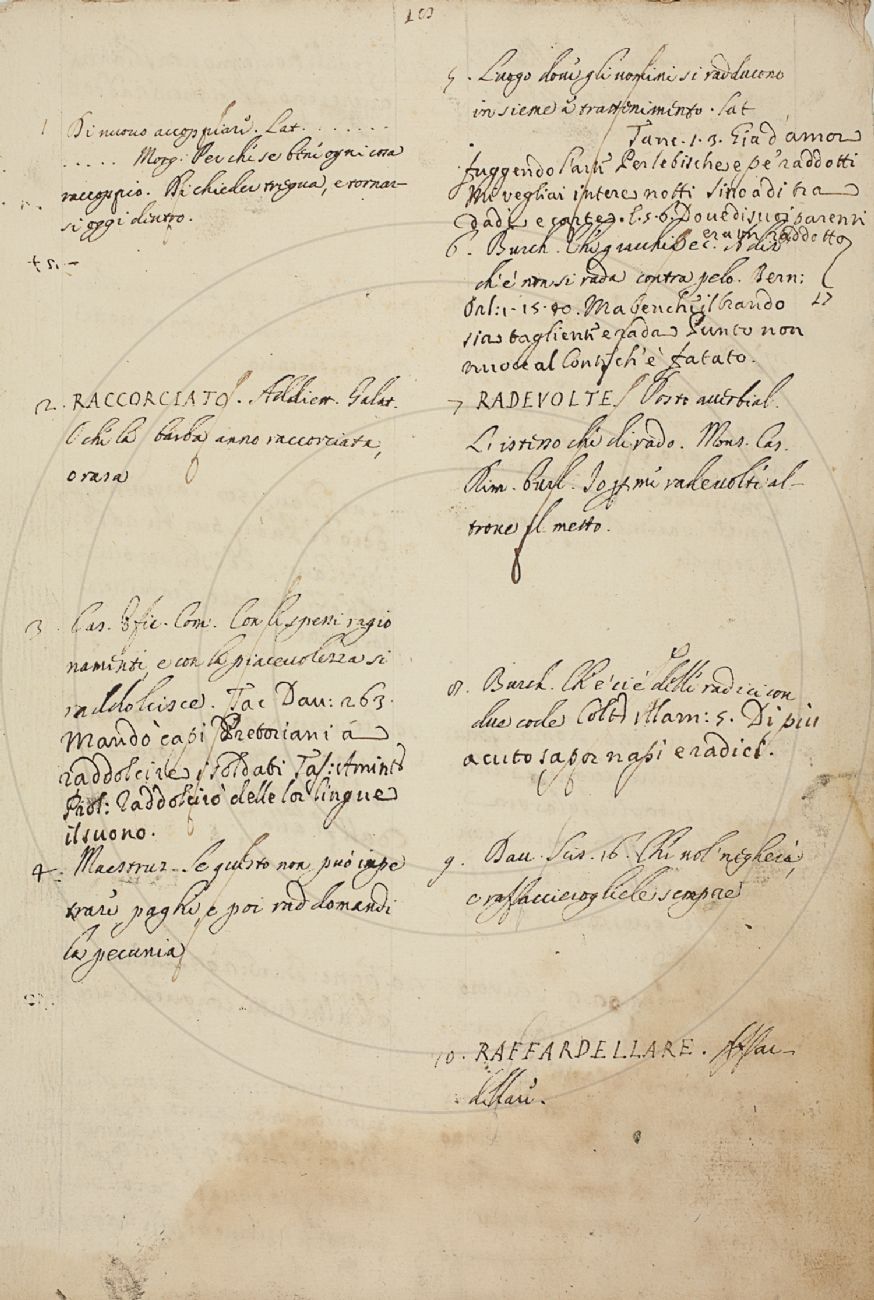 103
1 Di nuovo accoppiare. Lat. . . . . . . .
. . . . . Morg. Perchè se bene ogni cosa
raccoppio. Di chieder tregua, e tornar-
si oggi dentro.
2. RACCORCIATO. Addiett. Galat.
O chi la barba anno raccorciata,
o rasa
3 Cas. Ofic. Com. Con li spessi ragio
namenti, e con la piacevolezza si
raddolcisce. Tac Dav: 263.
Mandò capi Pretoriani á
raddolcire i soldati Tas: Amint
Prol: Raddolcirò delle lor lingue
il suono.
4. Maestruz. Se questo non può impe
trare, paghi, e poi raddomandi
la pecunia
5. Luogo dove gli uomini si radducono
insieme a trattenimento. Lat
. Tanc. 1. 3. E già d'amor
fuggendo l'arti Per le bische e pe' raddotti
Mi vegliai intere notti Sino a dì tra
dadi e carte. E. 5. 6. Dove di suoi parenti
era un raddotto
6. Burch. Chi gracchi &c. 
ch'e' non si rada contra pelo. Bern:
Orl: 1. 15. 40. Ma benchè il brando
sia tagliente e rada Punto non
nuoce al Conte ch'è fatato.
7 RADEVOLTE Posto avverbial.
L'istesso che di rado. Mons. Cas.
Rim. burl. Io per me radevolte al-
trove il metto.
8. Burch. Ch'e' ci è delle radici con
due code Colt: Alam: 5. Di più
acuto sapor napi e radici.
9. Dav. Scis. 16. Chi nol negherà,
o raffaccieroglielo sempre
10. RAFFARDELLARE. Affar-
dellare.